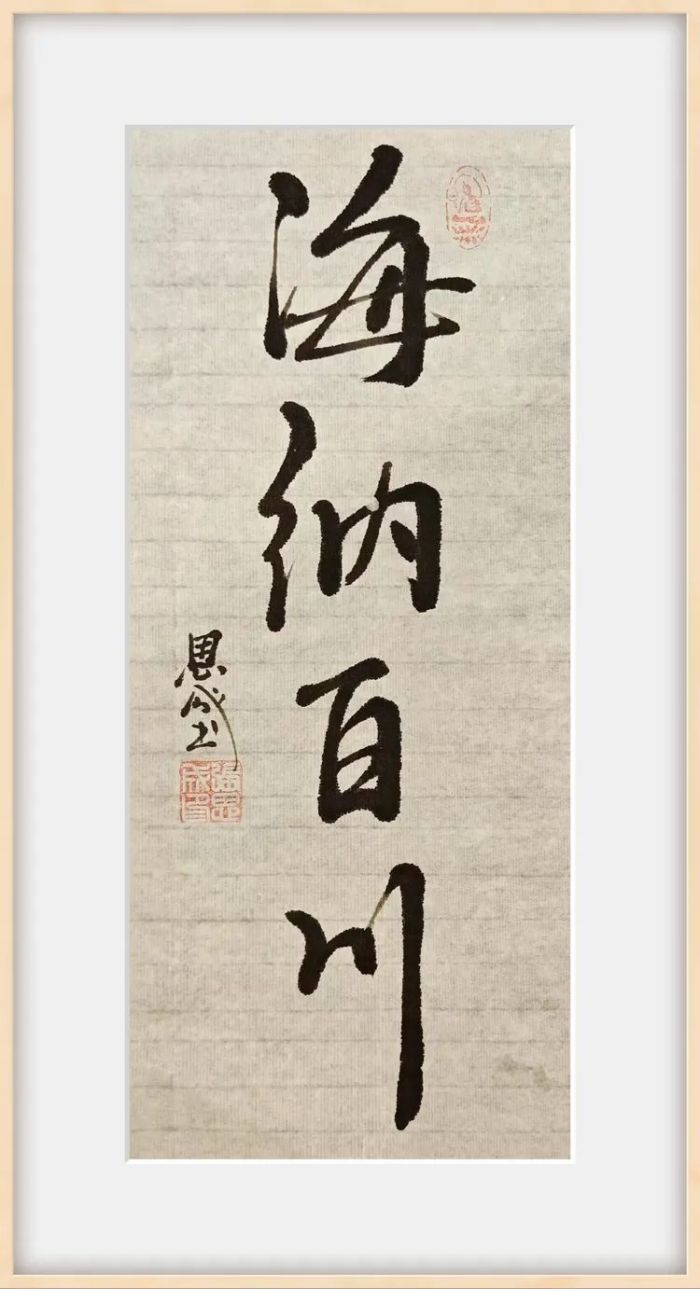 海纳百川
恩成书